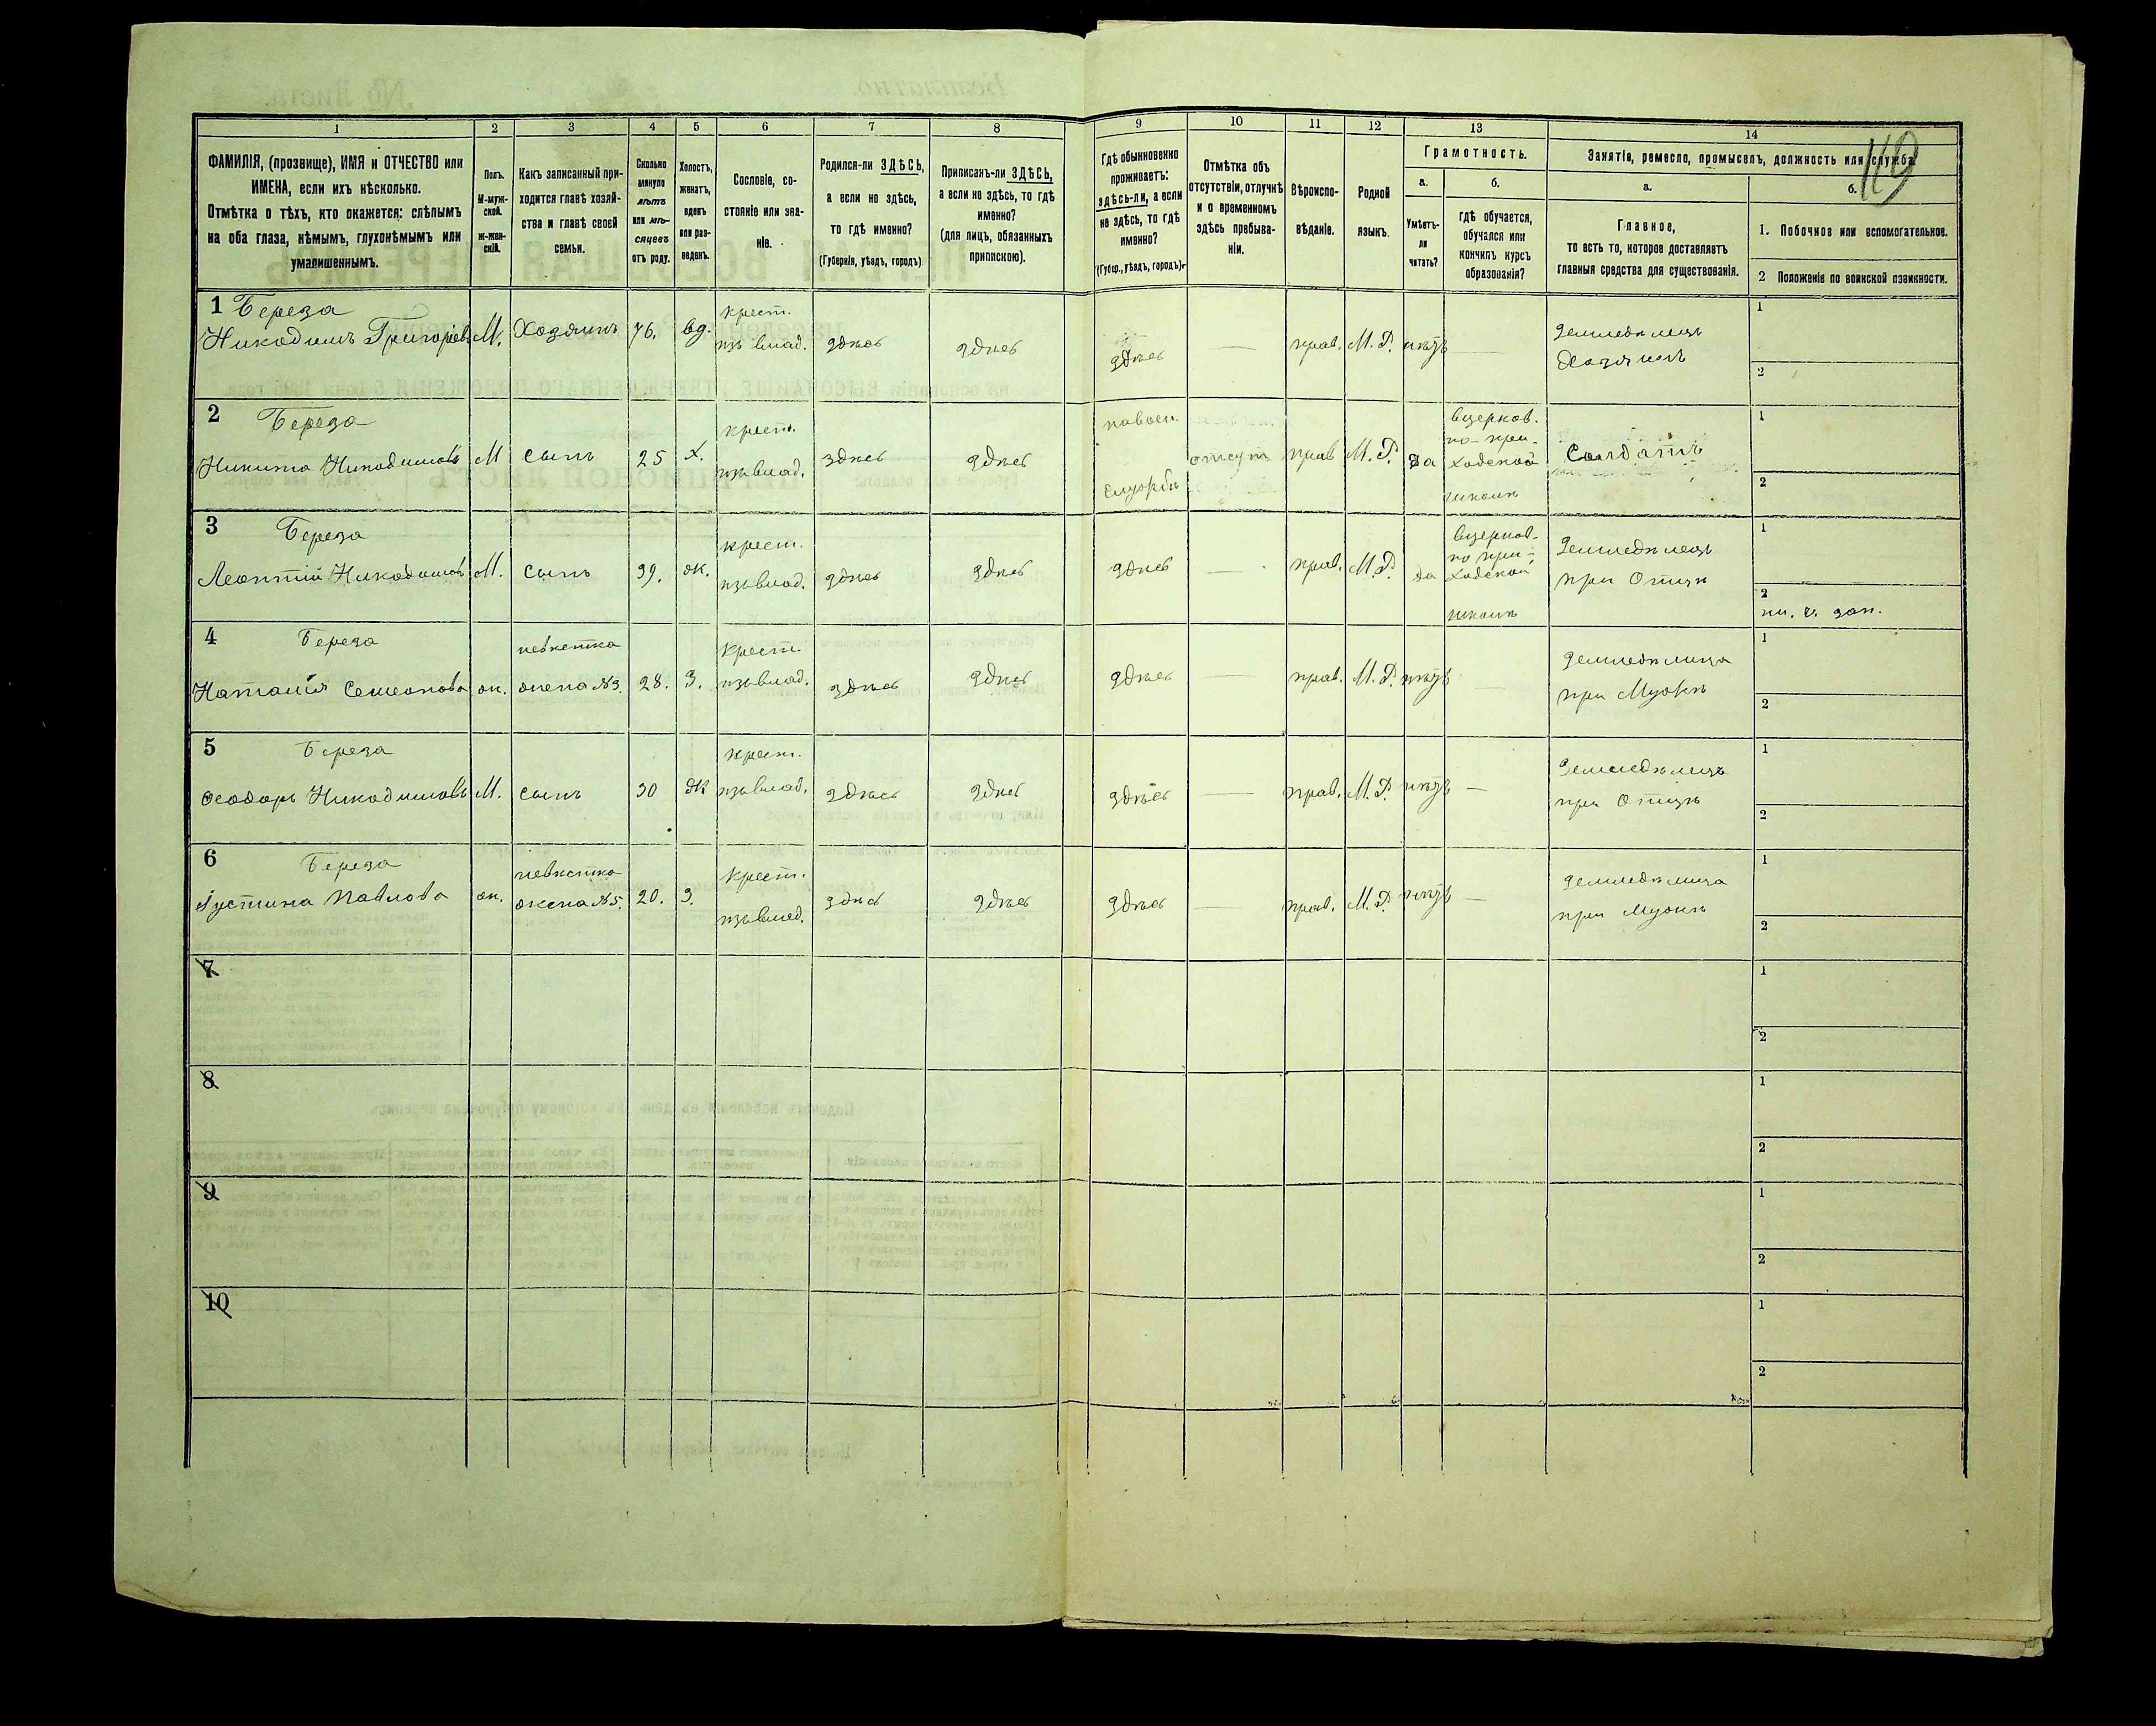 119
1 2 3 4 5 6 7 8 9 10 11 12 13 14
ФАМИЛІЯ, (прозвище), ИМЯ и ОТЧЕСТВО или
ИМЕНА, если ихъ нѣсколько.
Отмѣтка о тѣхъ, кто окажется: слѣпымъ
на оба глаза, нѣмымъ, глухонѣмымъ или
умалишеннымъ.
Полъ.
М-муж-
ской.
ж-жен-
скій.
Какъ записанный при-
ходится главѣ хозяй-
ства и главѣ своей
семьи.
Сколько
минуло
лѣтъ
или мѣ-
сяцевъ
отъ роду.
Холостъ,
женатъ,
вдовъ
или раз-
веденъ.
Сословіе, со-
стояніе или зва-
ніе.
Родился-ли ЗДѢСЬ,
а если не здѣсь,
то гдѣ именно?
(Губернія, уѣздъ, городъ)
Приписанъ-ли ЗДѢСЬ,
а если не здѣсь, то гдѣ
именно?
(для лицъ, обязанныхъ
припискою).
Гдѣ обыкновенно
проживаетъ:
здѣсь-ли, а если
не здѣсь, то гдѣ
именно?
(Губер., уѣздъ, городъ).
Отмѣтка объ
отсутствіи, отлучкѣ
и о временномъ
здѣсь пребыва-
ніи.
Вѣроиспо-
вѣданіе.
Родной
языкъ.
Грамотность.
а.
Умѣетъ-
ли
читать?
б.
гдѣ обучается,
обучался или
кончилъ курсъ
образованія?
Занятіе, ремесло, промыселъ, должность или служба.
а.
Главное,
то есть то, которое доставляетъ
главныя средства для существованія.
б.
1. Побочное или вспомогательное.
2 Положеніе по воинской повинности.
1 Береза
Никодимъ Григорьевъ
М.
Хозяинъ
76.
вд.
крест.
изъ влад.
здѣсь
здѣсь
здѣсь
—
прав.
М. Р.
нѣтъ
—
Земледѣлецъ
Хозяинъ
1
2
2 Береза
Никита Никодимовъ
М
сынъ
25
х.
крест.
изъ влад.
здѣсь
здѣсь
на воен.
службѣ
отсут
прав
М. Р.
да
въ церков.
но-при-
ходской
школѣ
Солдатъ
1
2
3 Береза
Леонтій Никодимовъ
М.
сынъ
39.
ж.
крест.
изъ влад.
здѣсь
здѣсь
здѣсь
—
прав.
М. Р.
да
въ церков-
но при-
ходской
школѣ
Земледѣлецъ
при Отцѣ
1
2
4 Береза
Наталія Семеонова
ж.
невѣстка
жена №3.
28.
З.
крест.
изъ влад.
здѣсь
здѣсь
здѣсь
—
прав.
М. Р.
нѣтъ
—
Земледѣлица
при Мужѣ
1
2
5 Береза
Ѳеодоръ Никодимовъ
М.
сынъ
30
ж
крест.
изъ влад.
здѣсь
здѣсь
здѣсь
—
прав.
М. Р.
нѣтъ
—
Земледѣлецъ
при Отцѣ
1
2
6 Береза
Іустина Павлова
ж.
невѣстка
жена №5.
20.
З.
крест.
изъ влад.
здѣсь
здѣсь
здѣсь
—
прав.
М. Р.
нѣтъ
—
Земледѣлица
при Мужѣ
1
2
7
1
2
8
1
2
9
1
2
10
1
2